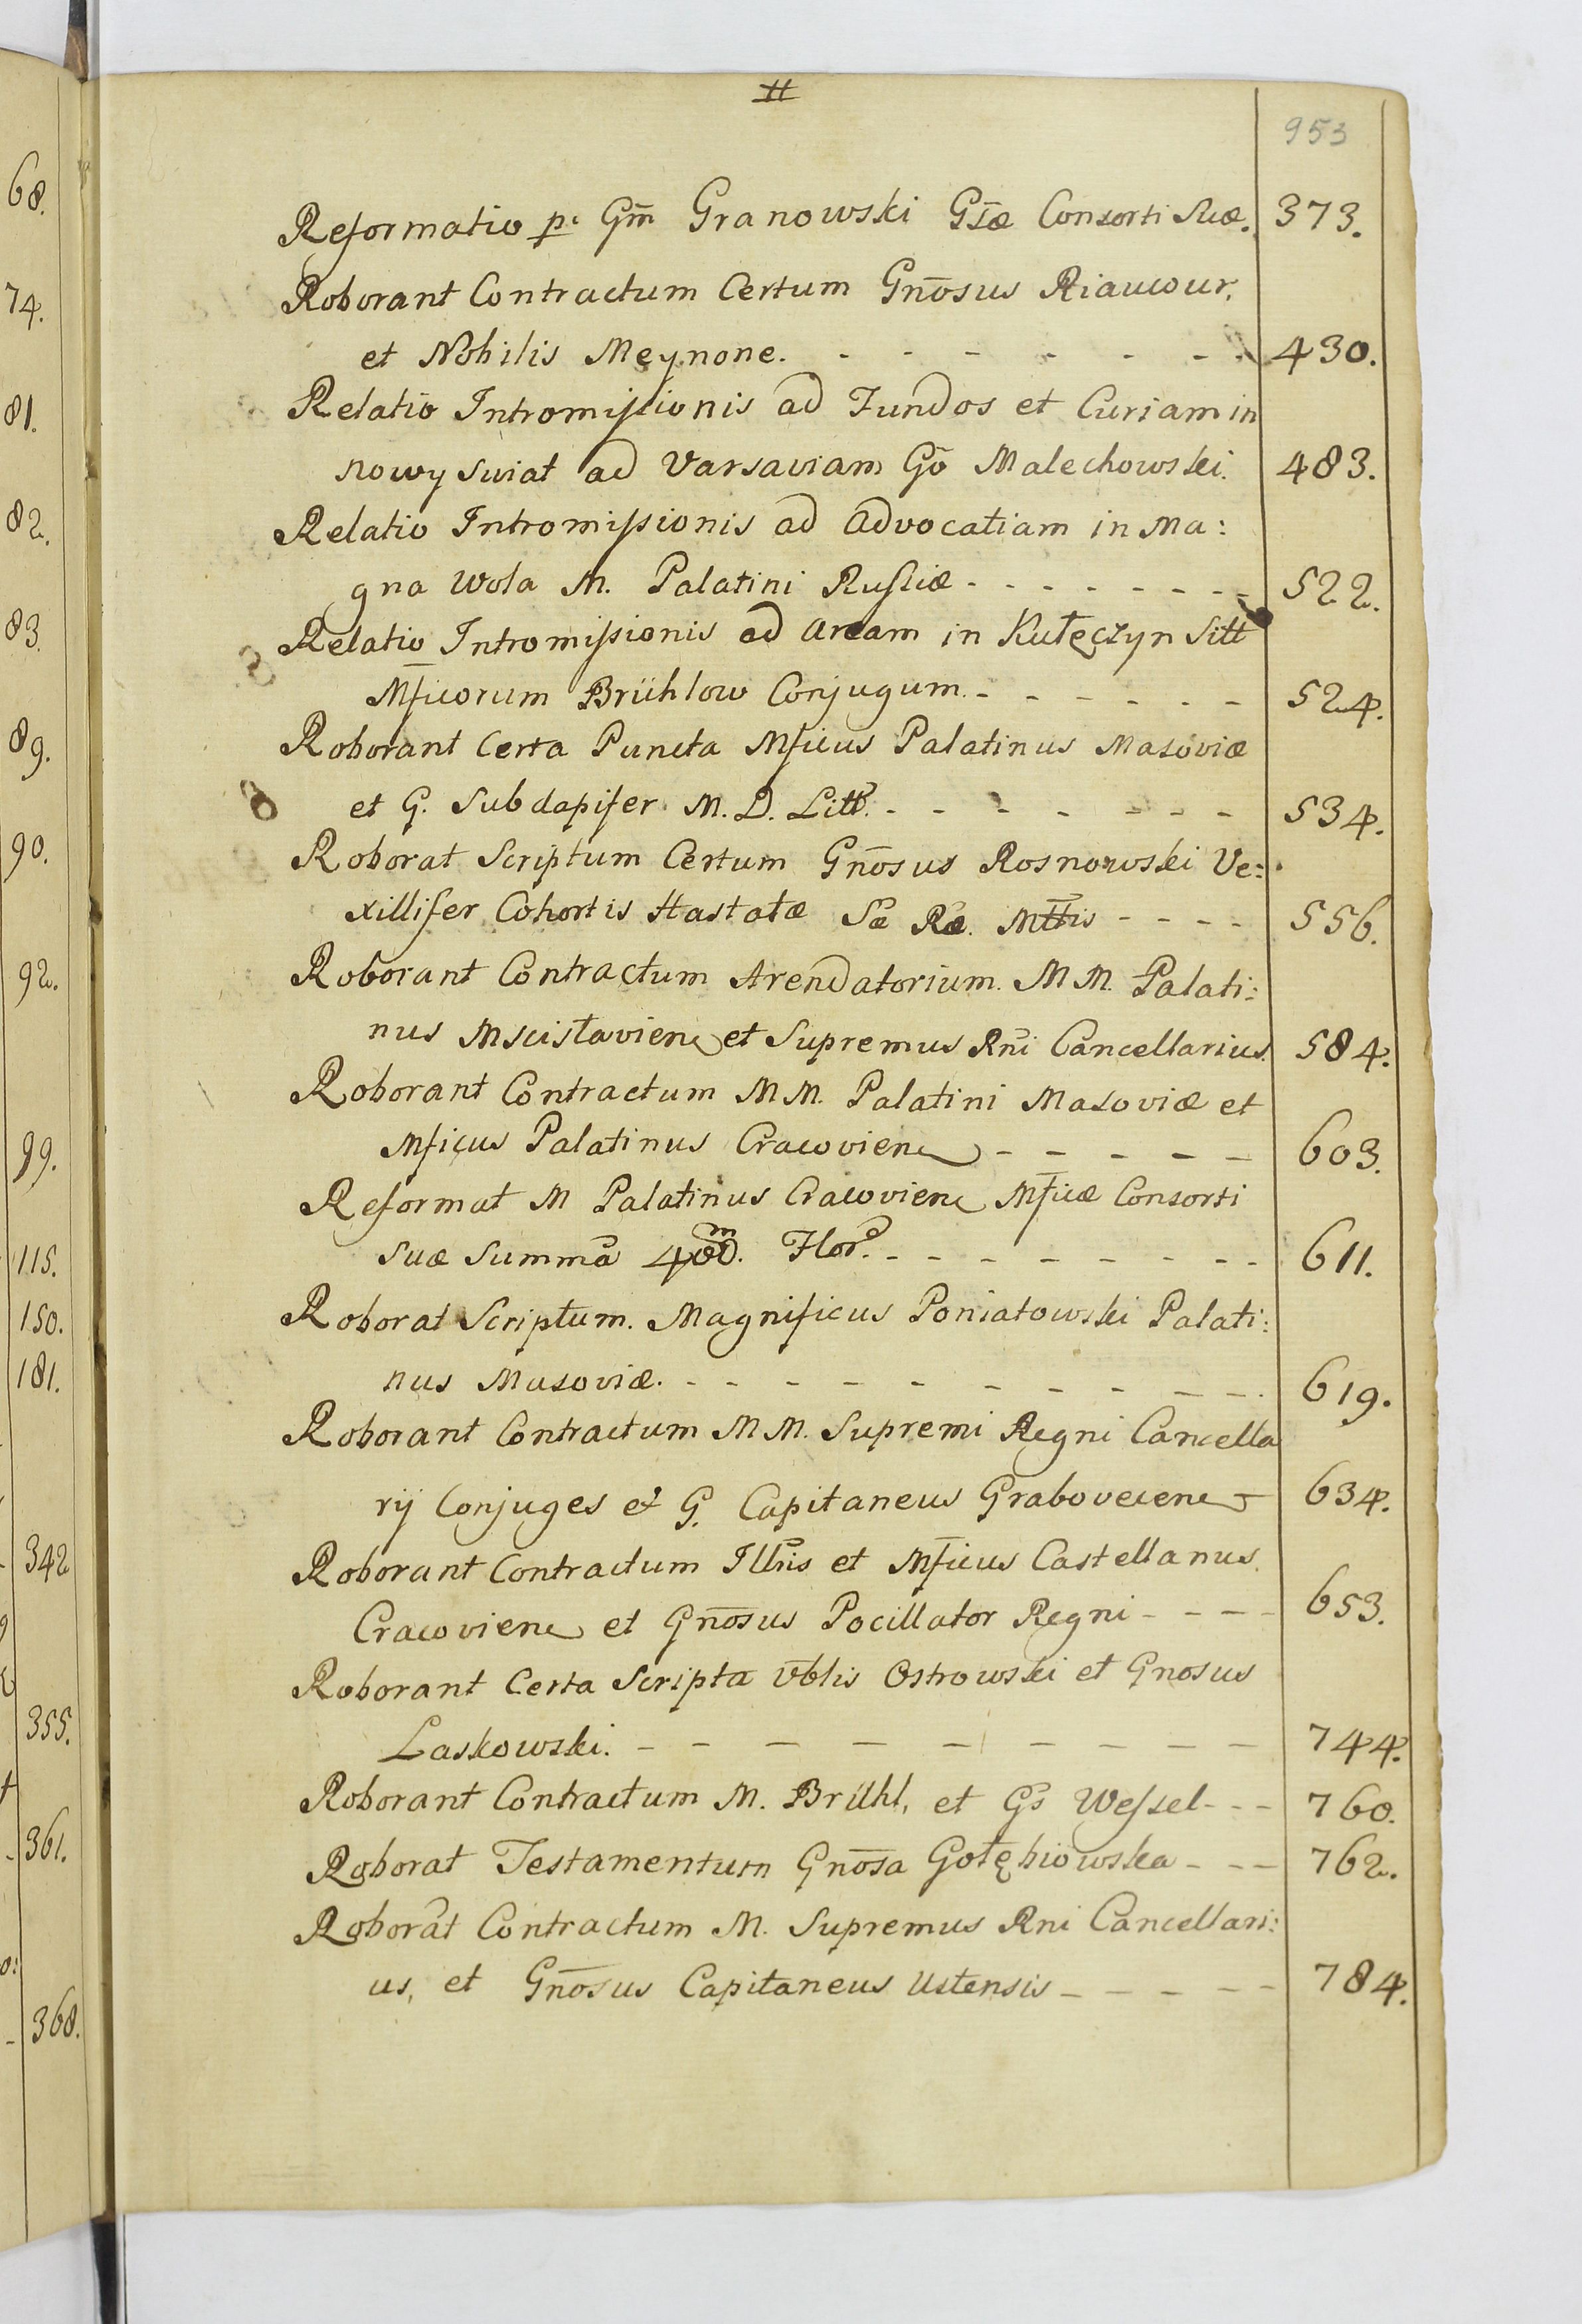 #
953
Reformatio p. Gm̄ Granowski Gsǣ Consorti Suæ. 373.
Roborant Contractum Certum Gnōsus Riaucour,
et Nobilis Meynone. - - - - - - - 430.
Relatio Intromissionis ad Fundos et Curiam in
nowy Swiat ad Varsaviam Gō Malechowski. 483.
Relatio Intromissionis ad Advocatiam in Ma:
gna Wola M. Palatini Russiæ - - - - - - - - 522.
Relatio Intromissionis ad Aream in Kułęczyn Sitt
Mficorum Brühlow Conjugum. - - - - - - 524.
Roborant Certa Puncta Mficus Palatinus Masoviæ
et G. Subdapifer M. D. Litt. - - - - - - - 534.
Roborat Scriptum Certum Gnōsus Rosnowski Ve:
xillifer Cohortis Hastatæ Sæ Ræ. Mttis - - - - 556.
Roborant Contractum Arendatorium. M M. Palati:
nus Mscislavien et Supremus Rni Cancellarius. 584.
Roborant Contractum M M. Palatini Masoviæ et
Mficus Palatinus Cracovien - - - - - 603.
Reformat M Palatinus Cracovien Mficæ Consorti
Suæ Summā 400.m Flor. - - - - - - - - 611.
Roborat Scriptum. Magnificus Poniatowski Palati:
nus Masoviæ. - - - - - - - - - - 619.
Roborant Contractum M M. Supremi Regni Cancella
rij Conjuges et G. Capitaneus Grabovecen - 634.
Roborant Contractum Illris et Mficus Castellanus
Cracovien et Gnōsus Pocillator Regni - - - - 653.
Roborant Certa Scripta Vblis Ostrowski et Gnosus
Laskowski. - - - - - - - - - - 744.
Roborant Contractum M. Brühl, et Gs Wessel - - - 760.
Roborat Testamentum Gnōsa Gołębiowska - - - 762.
Roborat Contractum M. Supremus Rni Cancellari:
us, et Gnōsus Capitaneus Ustensis - - - - - 784.
68.
74.
81.
82.
83.
89.
90.
92.
99.
115.
150.
181.
342
355.
361.
368.